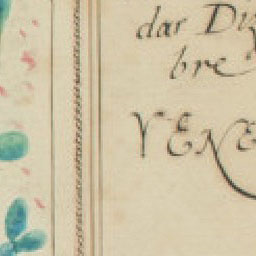 dar Di
bre
VENE